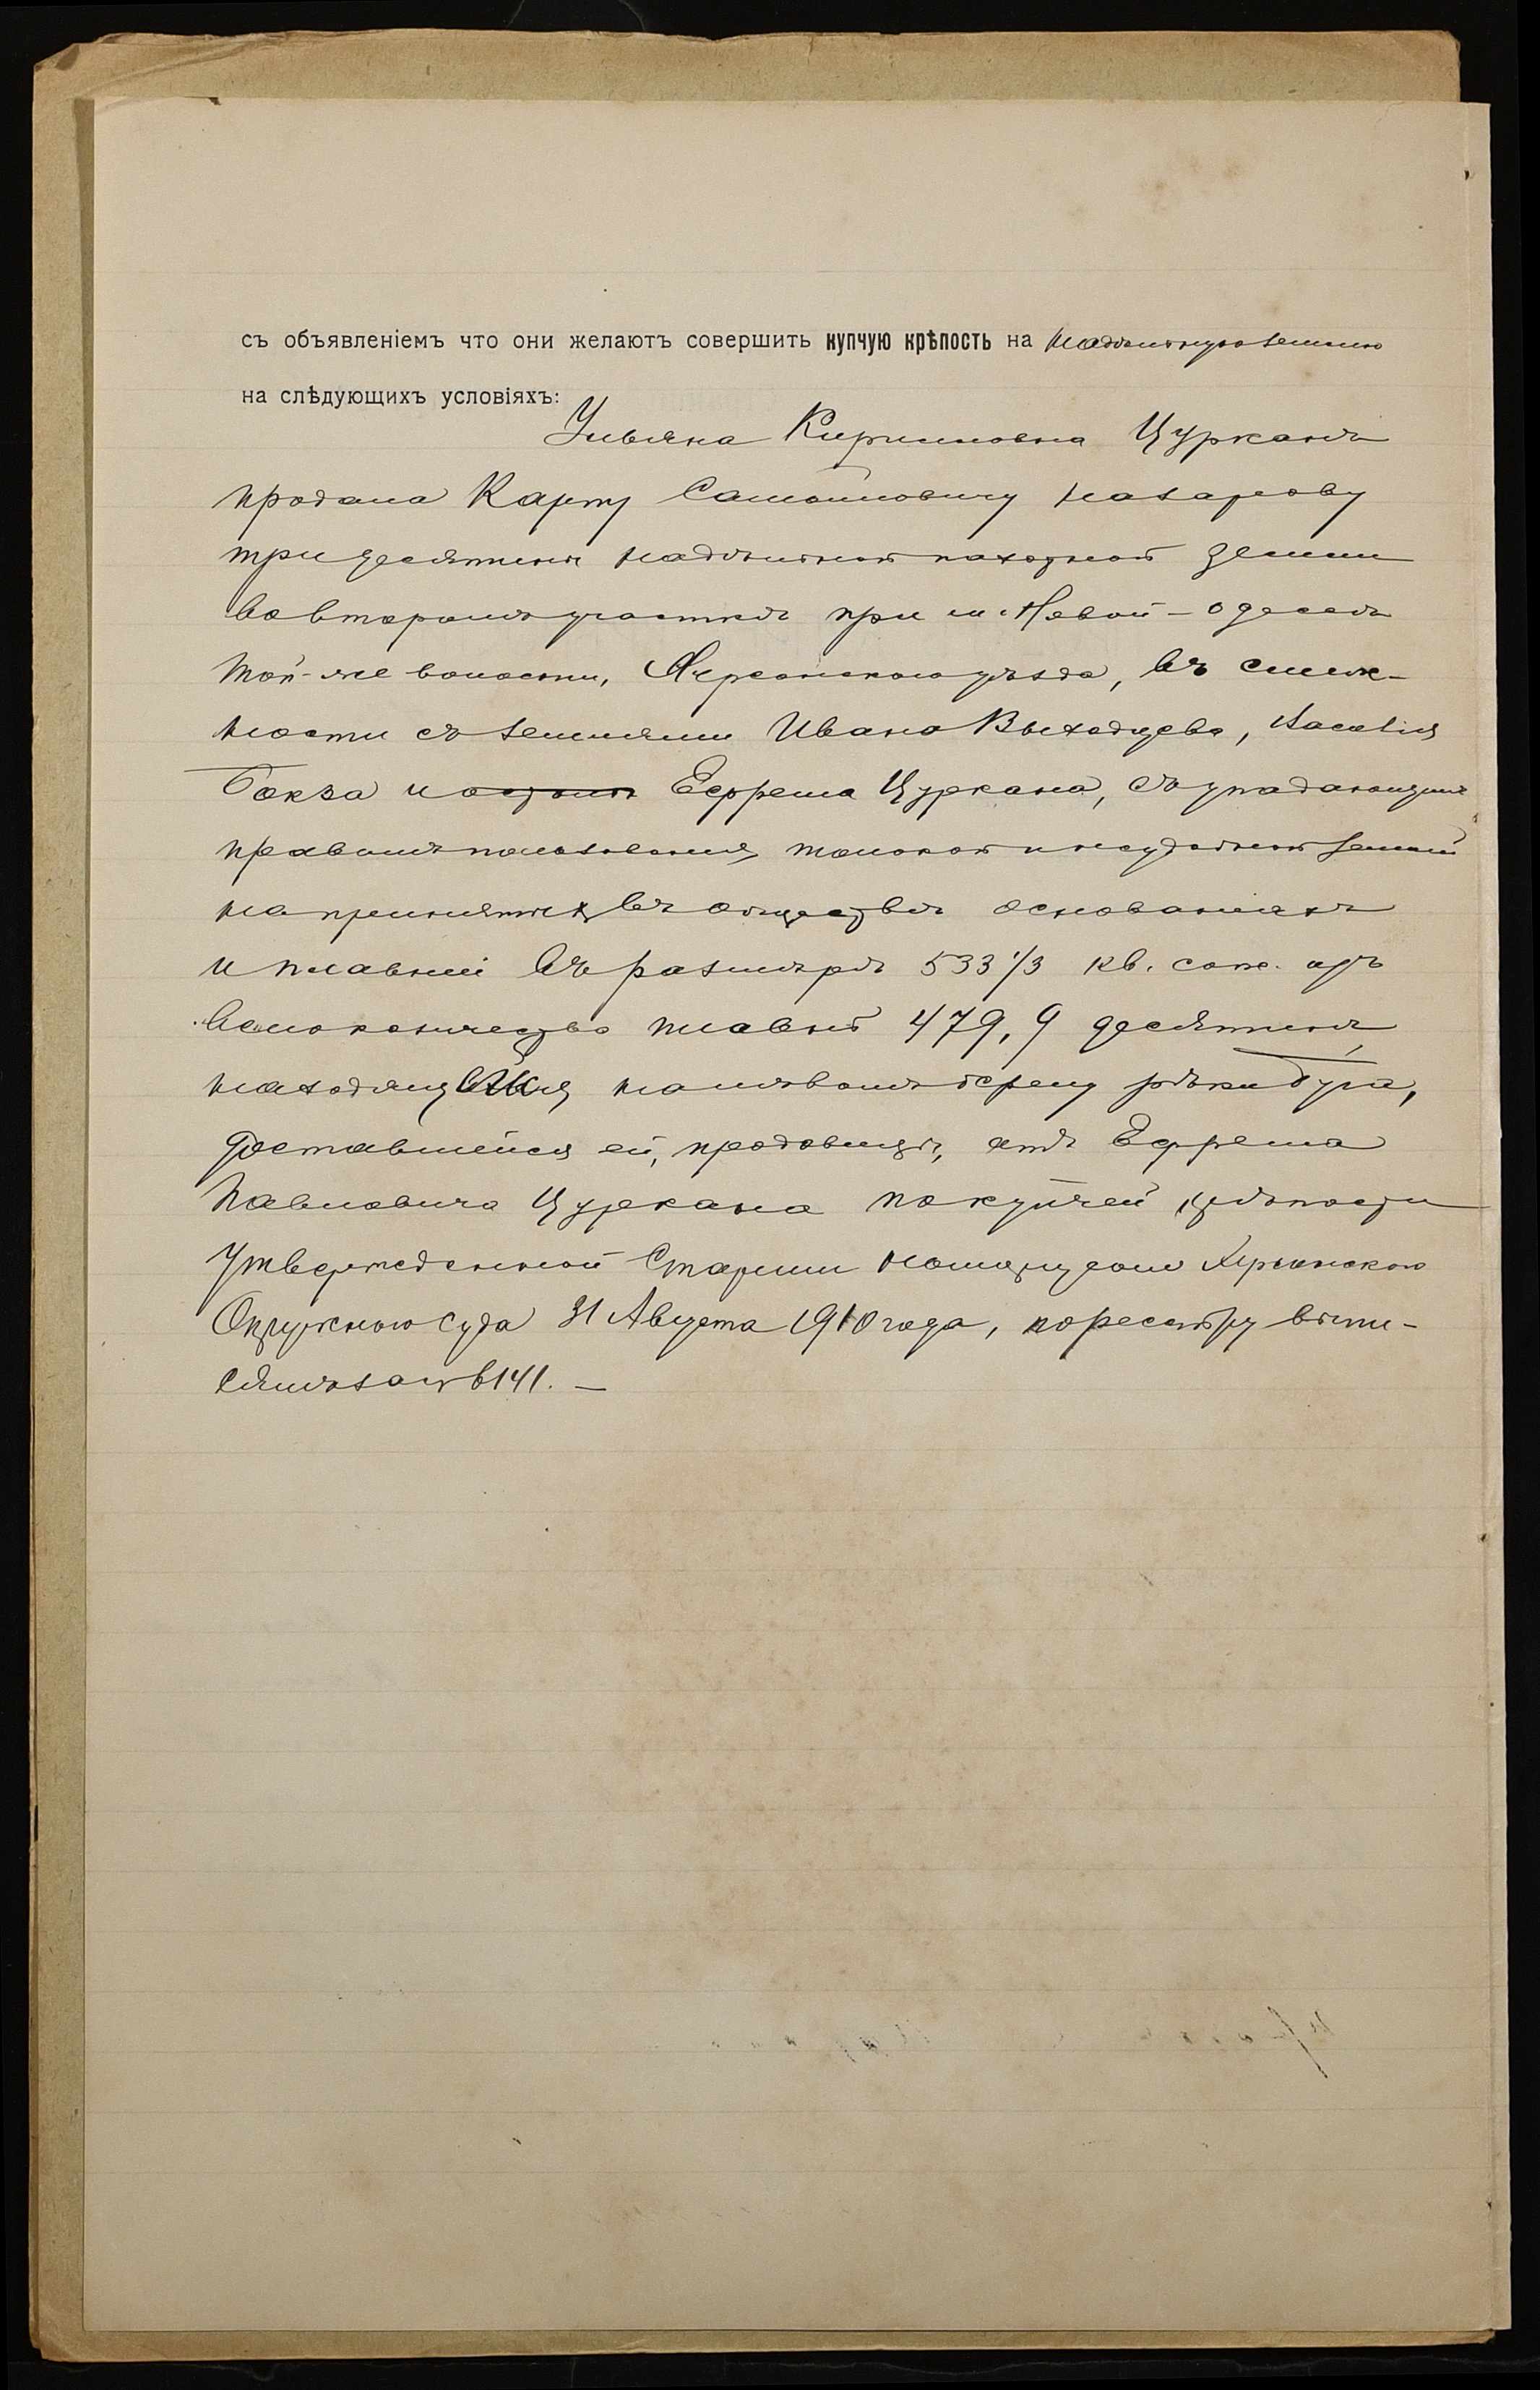 съ объявленіемъ что они желаютъ совершить купчую крѣпость на надѣльную землю
на слѣдующихъ условіяхъ:
Ульяна Кирилловна Цурканъ
продала Карпу Самойловичу Назарову
три десятины надѣльной пахотной земли
во второмъ участкѣ при м. Новой-Одессѣ
той-же волости, Херсонскаго уѣзда, въ смеж-
ности съ землями Ивана Выходцева, Василія
Бокза и Ефрема Цуркана, съ упадающимъ
правомъ пользованія толокой и неудобной землей
на принятыхъ въ обществѣ основаніяхъ
и плавней въ размѣрѣ 533 1/3 кв. саж. изъ
всего количества плавней 479,9 десятинъ,
находящ на лѣвомъ берегу рѣки Буга,
доставшейся ей, продавицѣ, отъ Ефрема
Павловича Цуркана по купчей крѣпости
утвержденной Старшим Нотаріусом Херсонскаго
Окружного Суда 31 Августа 1910 года, по реестру выпи-
141. —